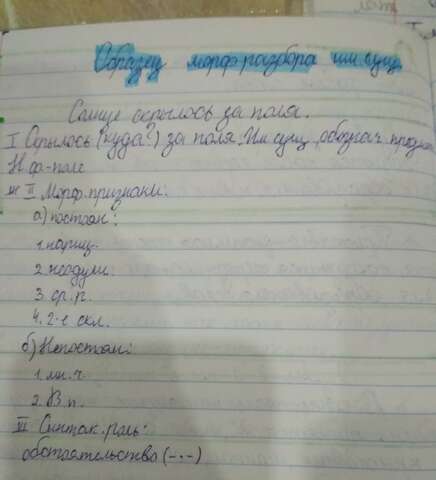 Образец морф. разбора им. сущ.
Солнце скрылось за поля.
I Скрылось (куда?) за поля. Им. сущ., обознач. предм
Н.ф-поле
II Морф. признаки:
а) постоян:
1. нариц.
2. неодуш.
3. ср. р.
4. 2-е скл.
б) Непостоян:
1. мн. ч.
2. В. п.
III Синтак. роль:
обстоятельство (-.-)